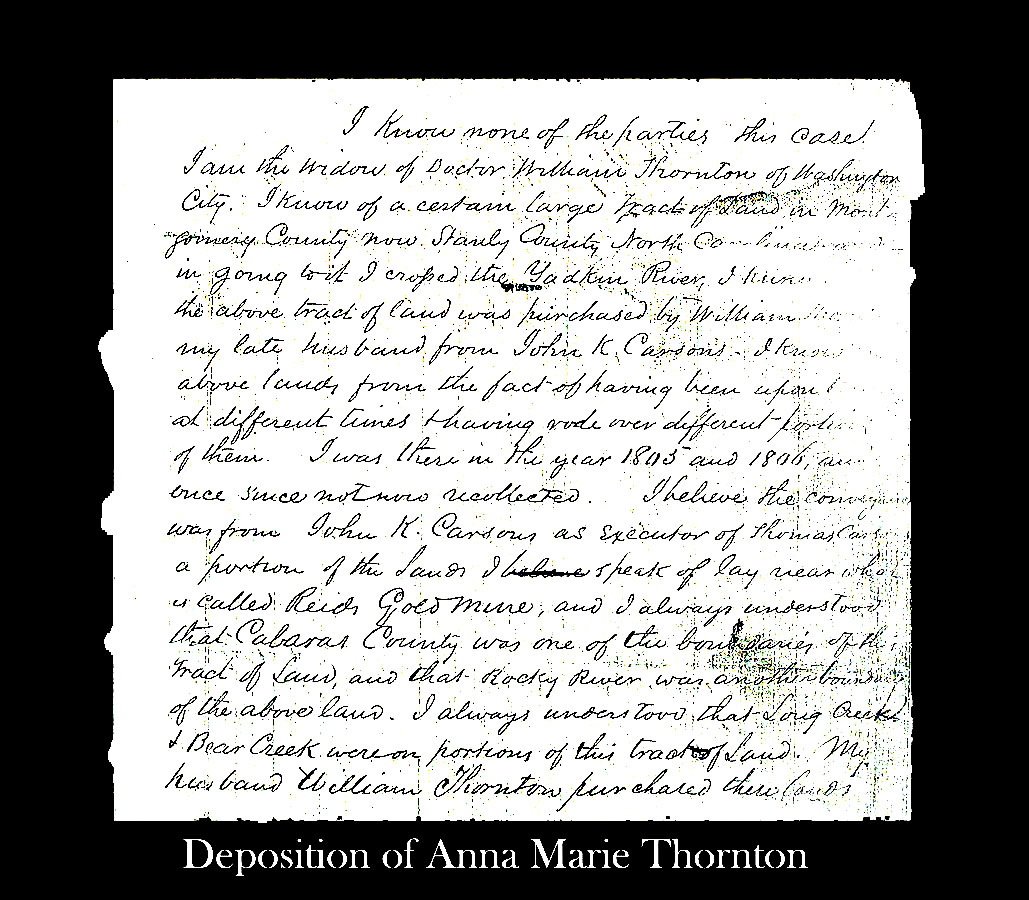 I know none of the parties this case
I am the widow of Doctor William Thornton of Washington
City. I know of a certain large Tract of Land in Mont
gomery County now Stanly County North
in going to it I crossed the Yadkin River, I
the above tract of land was purchased by William
my late husband from John K. Carsons - I know
above lands from the fact of having been upon
at different times & having rode over different
of them. I was there in the year 1805 and 1806,
once since not now recollected. I believe the
was from John K. Carsons as Executor of Thomas
a portion of the Lands I believe speak of lay near
is called Reids Gold Mine, and I always understood
that Cabaras County was one of the boundaries of
Tract of Land, and that Rocky River was another
of the above land. I always understood that Long Creek
& Bear Creek were on portions of this tract of Land. My
husband William Thornton purchased these lands
Deposition of Anna Marie Thornton